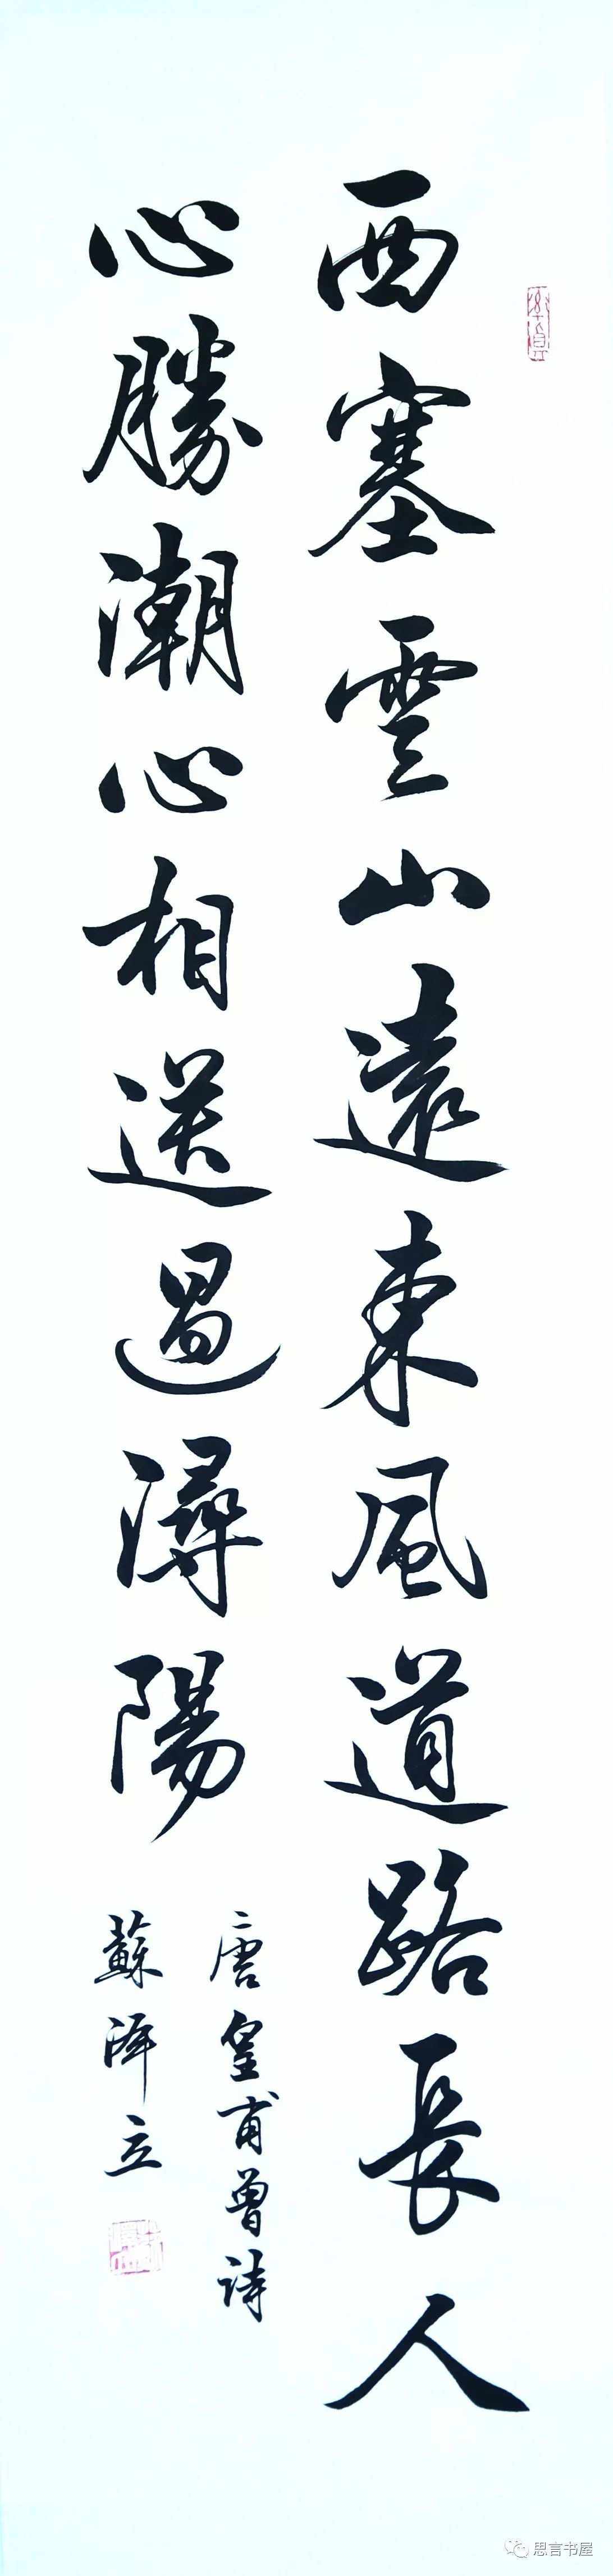 西塞雲山遠東風道路長人
心勝潮心相送過潯陽
唐皇甫曾詩
蘇澤立
思言书屋